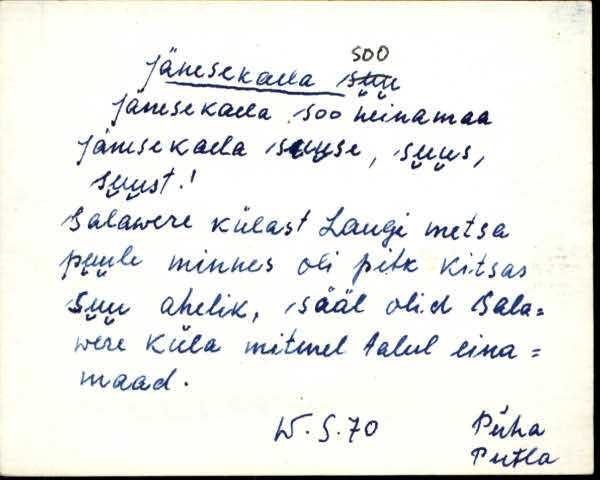 soo
Jänesekaela suu
Jänesekaela soo heinamaa
Jänesekaela suuse, suus,
suust!
Salawere külast Laugi metsa
puule minnes oli pitk kitsas
suu ahelik, sääl olid Sala=
were küla mitmel talul eina=
maad.
W. S. 70
Püha
Putla